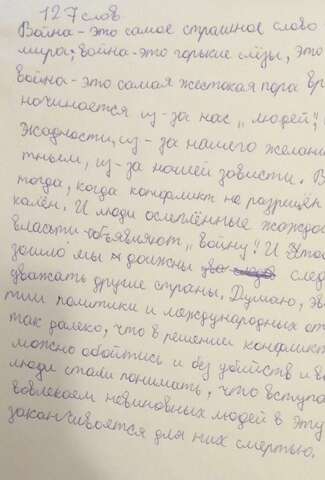 127 слов
Война - это самое страшное слово
мира; война - это горькие слёзы, это
война - это самая жестокая пора вр
начинается из-за нас „людей",
жадности, из-за нашего желани
тным, из-за нашей зависти. В
тогда, когда конфликт не разрешён
калён. И люди ослеплённые жаждой
власти объявляют „войну". И чтоб
зошло мы должны след
уважать другие страны. Думаю, эв
тии политики и международных от
так далеко, что в решении конфликт
можно обойтись и без убийств и в
люди стали понимать, что вступа
вовлекаем невиновных людей в эту
заканчивается для них смертью.